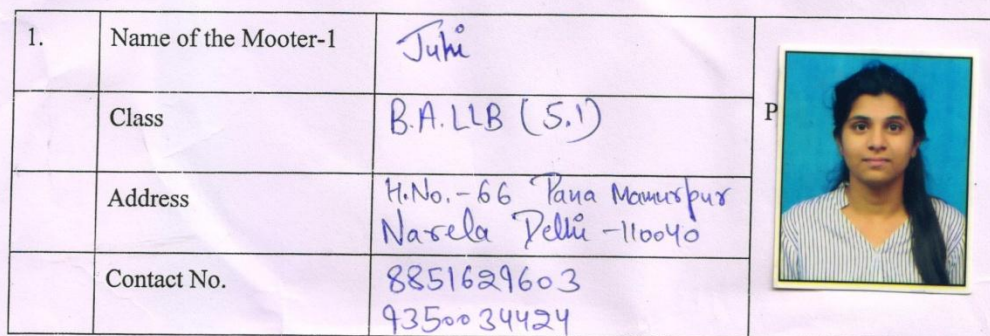 1. Name of the Mooter-1 Juhi
Class B.A.LLB (5.1)
P
Address H.No.-66 Pana Mamurpur
Narela Delhi -110040
Contact No. 8851629603
9350034424